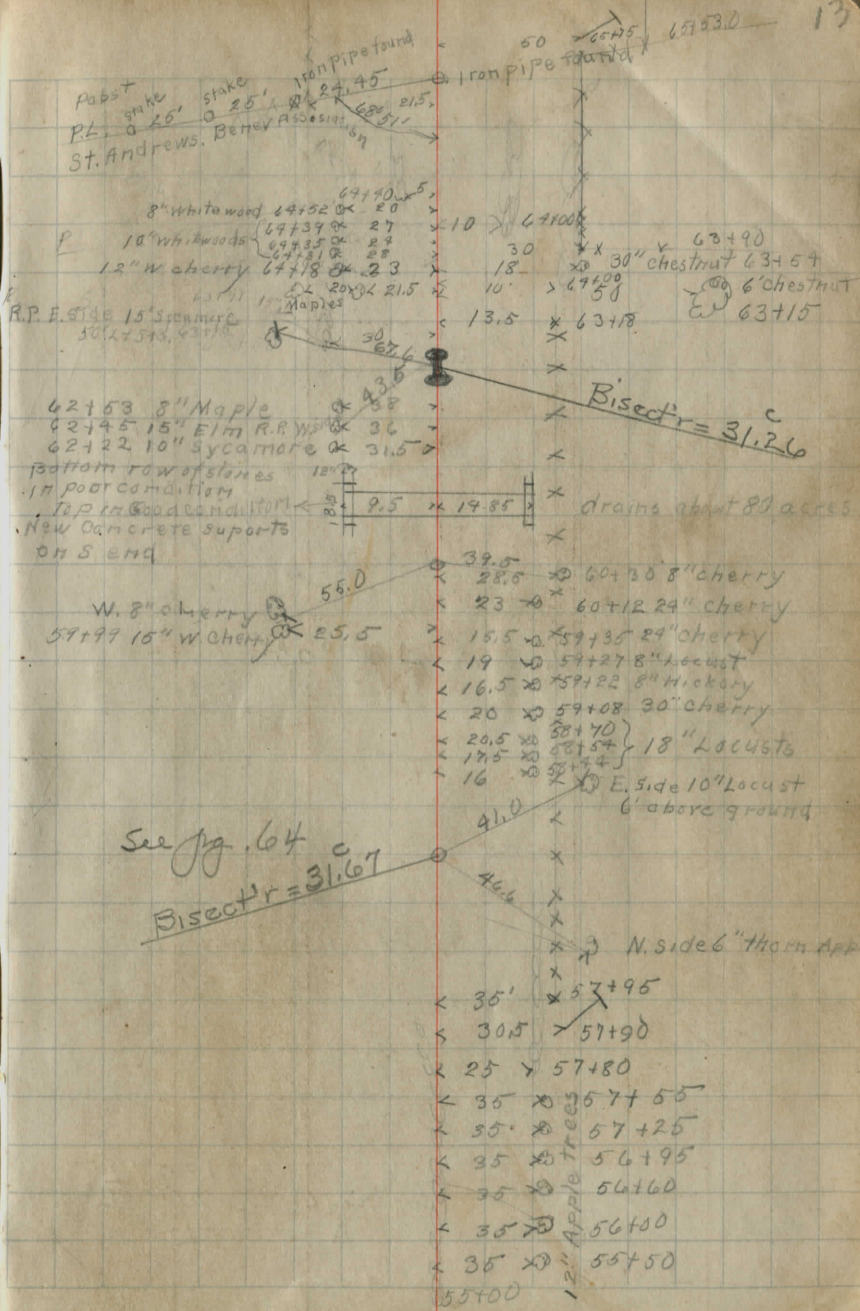 13
50 65+75 65+53.0
Iron pipe found
Iron pipe found
Pabst
stake stake 24.45
P.L. 25' 25'
21.5
68° 51'
St. Andrews. Benev Association
64+90 5
8" Whitewood 64+52 20
10 64+00
64+39 27
10" Whitewoods 64+35 29
64+31 28
30 63+90
12" W cherry 64+18 23
18 30" chestnut 63+54
20 21.5
10 50
6" chestnut
Maples
63+15
R.P. E. side 15" Sycamore
13.5 63+18
30
67.6
43.5
Bisect'r = 31.26 c
62+53 8" Maple 38
62+45 15" Elm R.P. W.S. 36
62+22 10" Sycamore 31.5
Bottom row of stones
in poor condition
Top in Good condition
New Concrete suports
on S end
12"
18.5 9.5 14.85 drains about 80 acres
39.5
28.5 60+30 8" cherry
55.0
W. 8" cherry
23 60+12 24" cherry
59+99 15" W Cherry 25.5
15.5 59+35 29" cherry
19 59+27 8" Locust
16.5 59+22 8" Hickory
20 59+08 30" cherry
20.5 58+70
17.5 58+54 18" Locusts
16 58+44
E. side 10" Locust
6' above ground
41.0
See pg. 64
Bisect'r = 31.67 c
46.6
N. side 6" thorn App
35' 57+95
30.5 57+90
25 57+80
35 57+55
35 57+25
35 56+95
35 56+60
35 56+00
35 55+50
12" Apple trees
55+00